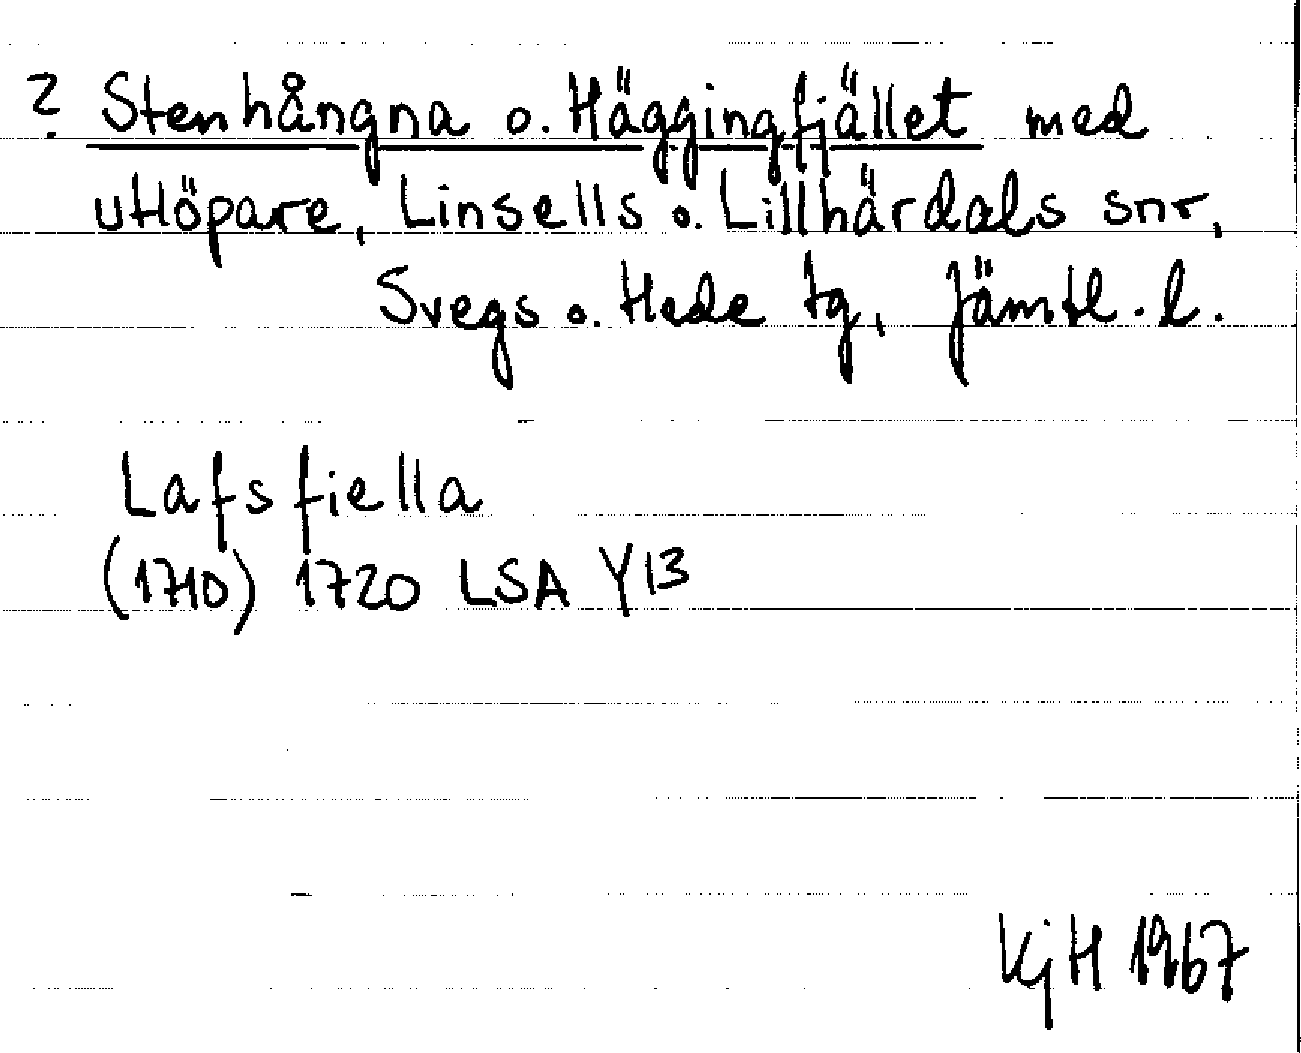 ? Stenhångna o. Häggingfjället med
utlöpare, Linsells o. Lillhärdals snr,
Svegs o. Hede tg, Jämtl. l.
Lafsfiella
(1710) 1720 LSA Y13
KjH 1967